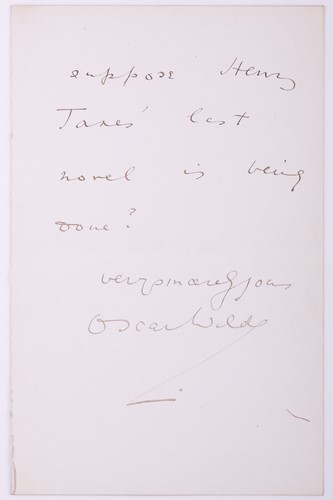 suppose Henry
James' last
novel is being
done?
very sincerely yours
Oscar Wilde